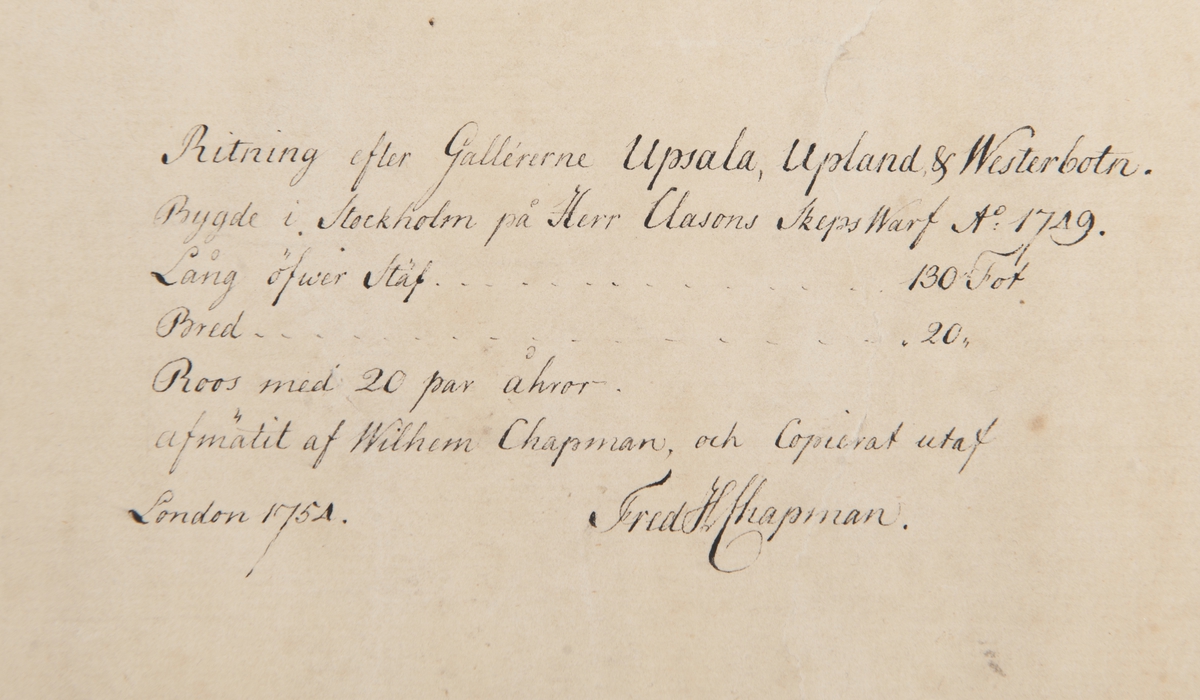 Ritning efter Gallérerne Upsala, Upland, & Westerbotn.
Bygde i Stockholm på Herr Clasons SkepsWarf Aº: 1749.
Lång öfwer Stäf. . . . . . . . . . . . . . 130 Fot
Bred - - - - - - - - - - - - - - . 20 „
Roos med 20 par åhror.
afmätit af Wilhem Chapman, och Copierat utaf
London 1754. Fred H Chapman.